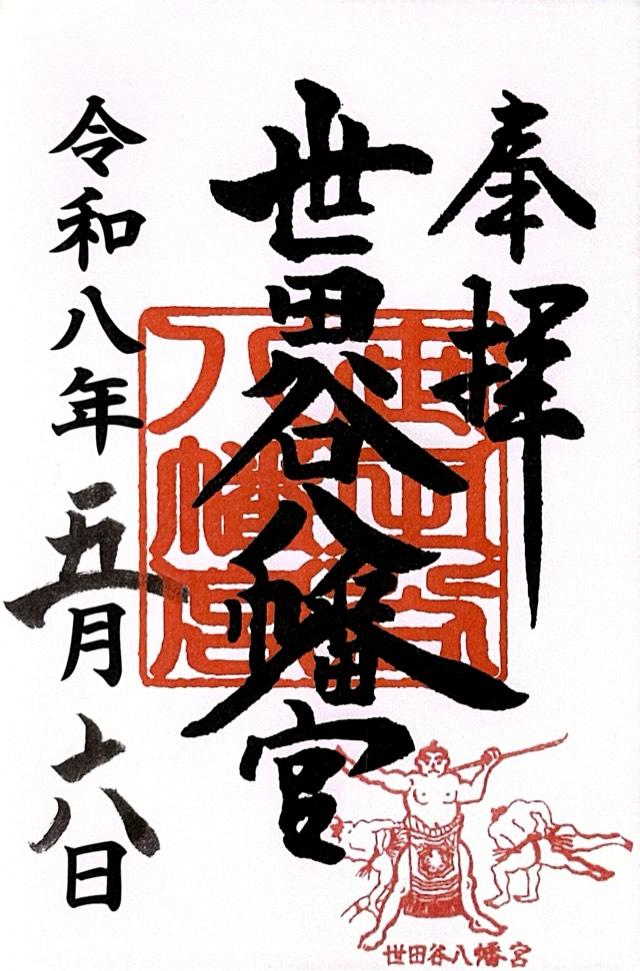 奉拝
世田谷八幡宮
令和八年五月十八日
世田谷
八幡宮
世田谷八幡宮